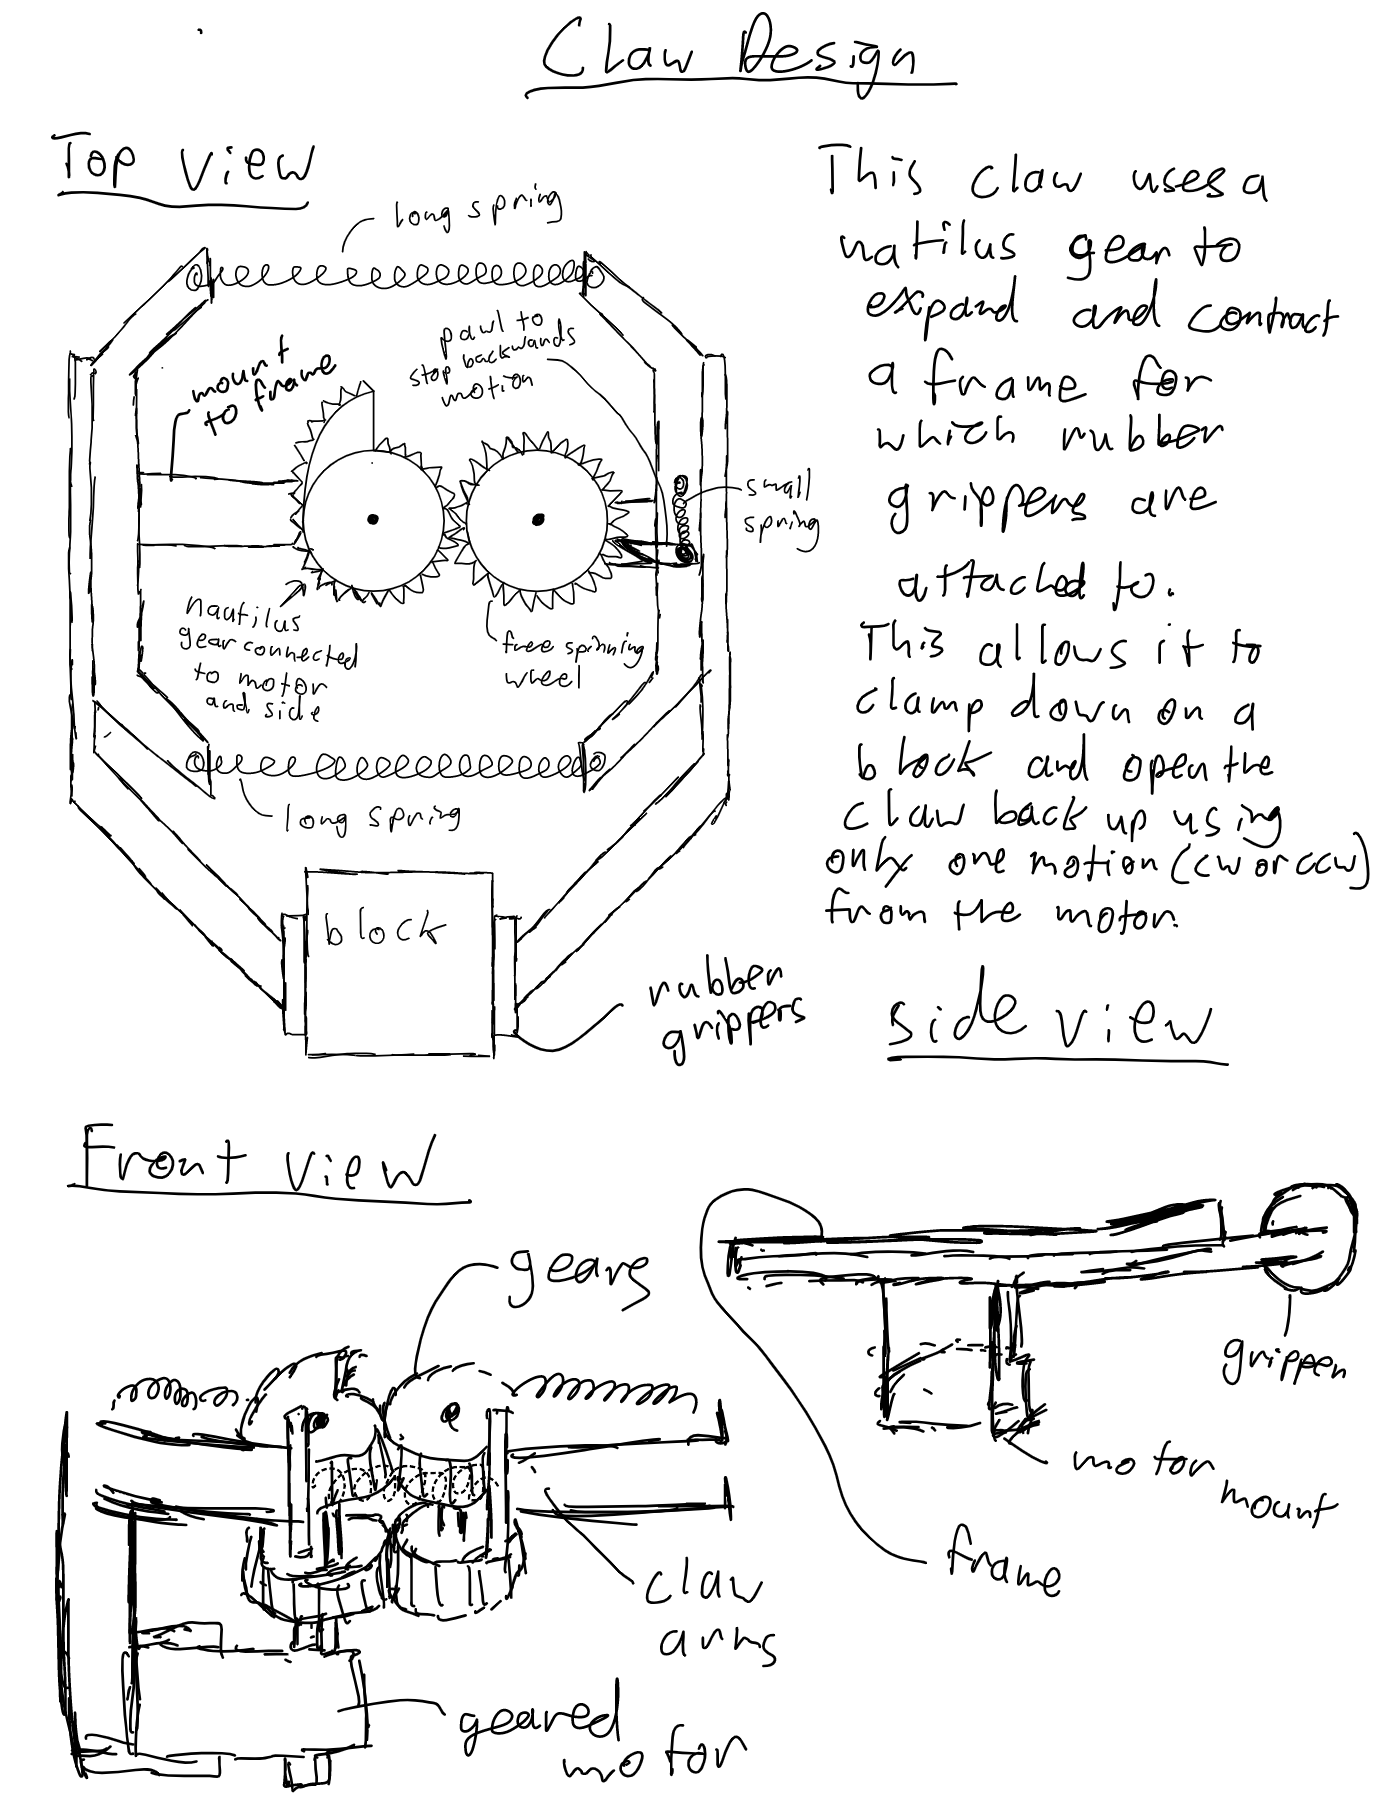 Claw Design
Top view
long spring
pawl to
stop backwards
motion
mount
to frame
small
spring
nautilus
gear connected
to motor
and side
free spinning
wheel
long spring
block
rubber
grippers
This claw uses a
natilus gear to
expand and contract
a frame for
which rubber
grippers are
attached to.
This allows it to
clamp down on a
block and open the
claw back up using
only one motion (cw or ccw)
from the motor.
side view
gripper
motor
mount
frame
Front view
gears
claw
arms
geared
motor